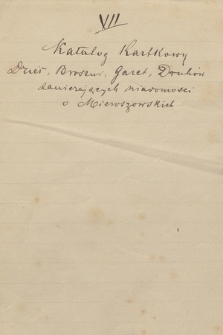 VII
Katalog Kartkowy
Dzieł, Broszur, Gazet, Druków
zawierających wiadomości
o Mieroszowskich